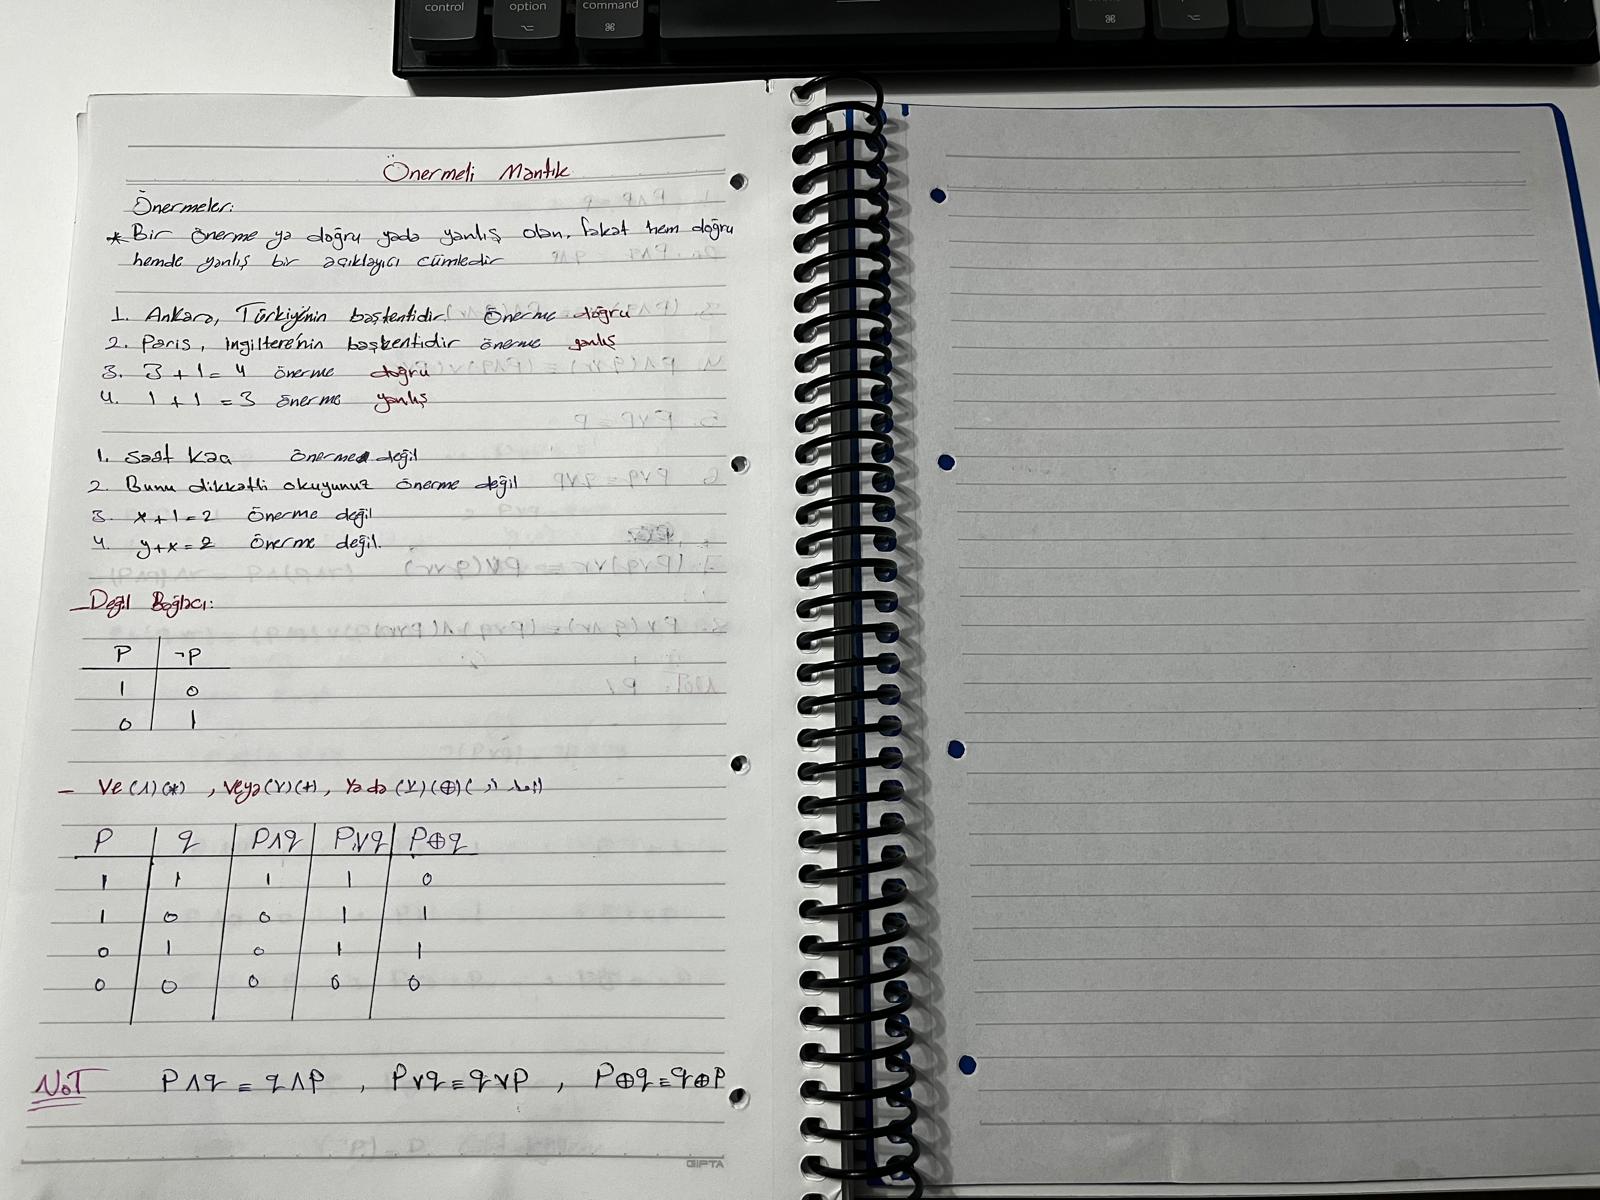 control option command
⌥ ⌘ ⌘ ⌥
Önermeli Mantık
Önermeler:
* Bir önerme ya doğru yada yanlış olan, fakat hem doğru
hemde yanlış bir açıklayıcı cümledir
1. Ankara, Türkiye'nin başkentidir. Önerme doğru
2. Paris, ingiltere'nin başkentidir önerme yanlış
3. 3+1=4 önerme doğru
4. 1+1=3 önerme yanlış
1. Saat kaç önerme değil
2. Bunu dikkatli okuyunuz önerme değil
3. x+1=2 Önerme değil
4. y+x=2 Önerme değil.
- Değil Bağlacı:
P ¬P
1 0
0 1
- Ve (∧)(*), Veya (∨)(+), Yada (⊻)(⊕)
P q P∧q P∨q P⊕q
1 1 1 1 0
1 0 0 1 1
0 1 0 1 1
0 0 0 0 0
NOT P∧q ≡ q∧P , P∨q ≡ q∨P , P⊕q ≡ q⊕P
GIPTA